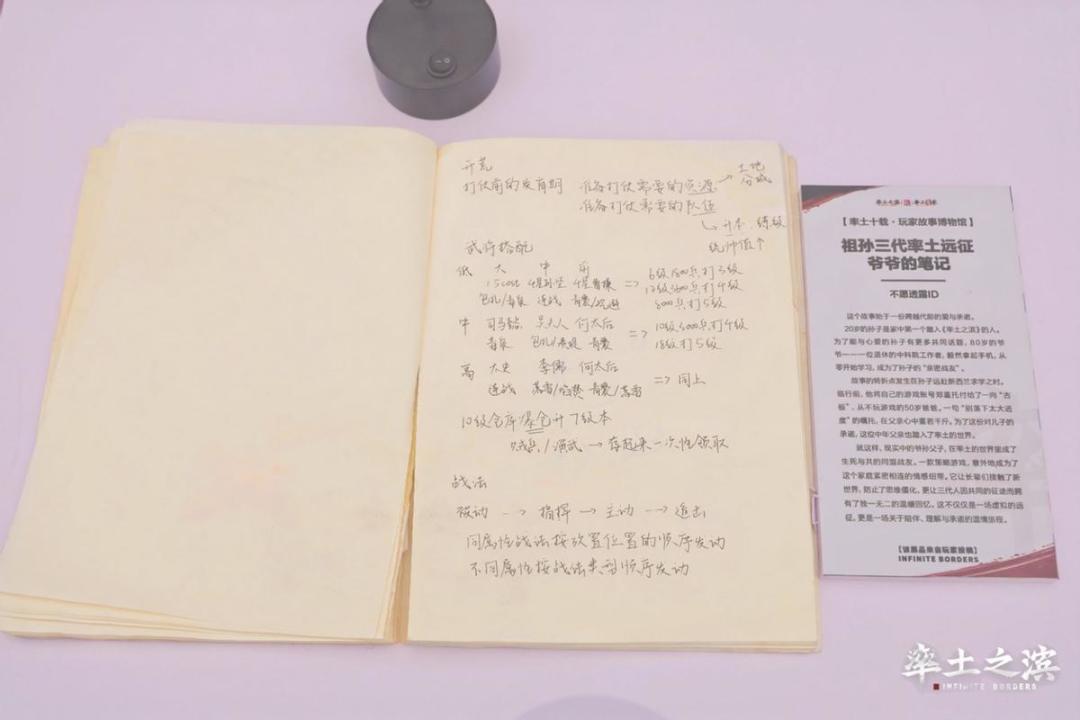 开荒
打仗前的发育期 准备打仗需要的资源 → 土地 分城
准备打仗需要的队伍
↳ 升本、练级
统帅值个
武将搭配
低 大 中 前
1.5cost 4星孙坚 4星曹操 => 6级1800兵打3级
始计/青囊 连战 青囊
中 司马懿 吴夫人 何太后 => 10级 打4级
18级打5级
高 大史 李儒 何太后
连战 青囊 => 同上
10级仓库爆仓升7级本
贼兵/演武 → 存起来一次性领取
战法
被动 --> 指挥 → 主动 --> 追击
同属性战法按放置位置的顺序发动
不同属性按战法类型顺序发动
率土之滨
【率土十载·玩家故事博物馆】
祖孙三代率土远征
爷爷的笔记
不愿透露ID
这个故事始于一份跨越代际的爱与承诺。
20岁的孙子是家中第一个踏入《率土之滨》的人。
为了能与心爱的孙子有更多共同话题，80岁的爷
爷——一位退休的中科院工作者，毅然拿起手机，从
零开始学习，成为了孙子的“亲密战友”。
故事的转折点发生在孙子远赴新西兰求学之时。
临行前，他将自己的游戏账号郑重托付给了一向“古
板”、从不玩游戏的50岁爸爸。一句“别落下太大进
度”的嘱托，在父亲心中重若千斤。为了这份对儿子的
承诺，这位中年父亲也踏入了率土的世界。
就这样，现实中的爷孙父子，在率土的世界里成了
生死与共的同盟战友。一款策略游戏，意外地成为了
这个家庭紧密相连的情感纽带。它让长辈们接触了新
世界，防止了思维僵化，更让三代人因共同的征途而拥
有了独一无二的温暖回忆。这不仅仅是一场虚拟的远
征，更是一场关于陪伴、理解与承诺的温情旅程。
【该展品来自玩家投稿】
INFINITE BORDERS
率土之滨
INFINITE BORDERS